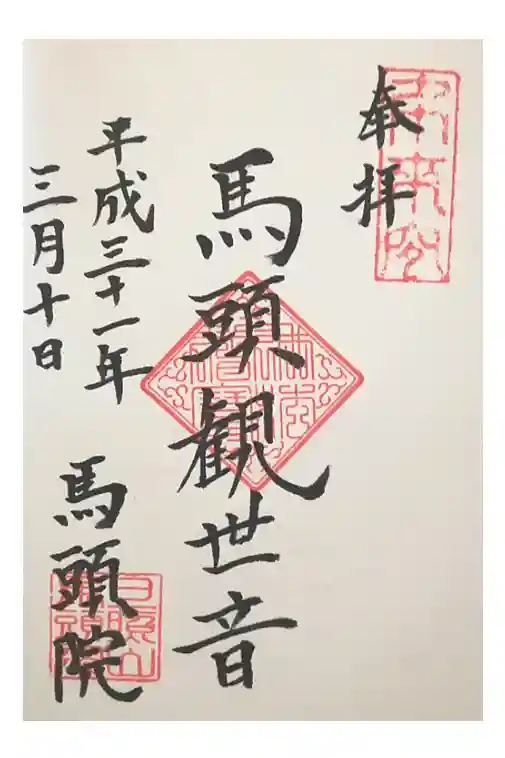 奉拝
馬頭観世音
平成三十一年
三月十日
馬頭院